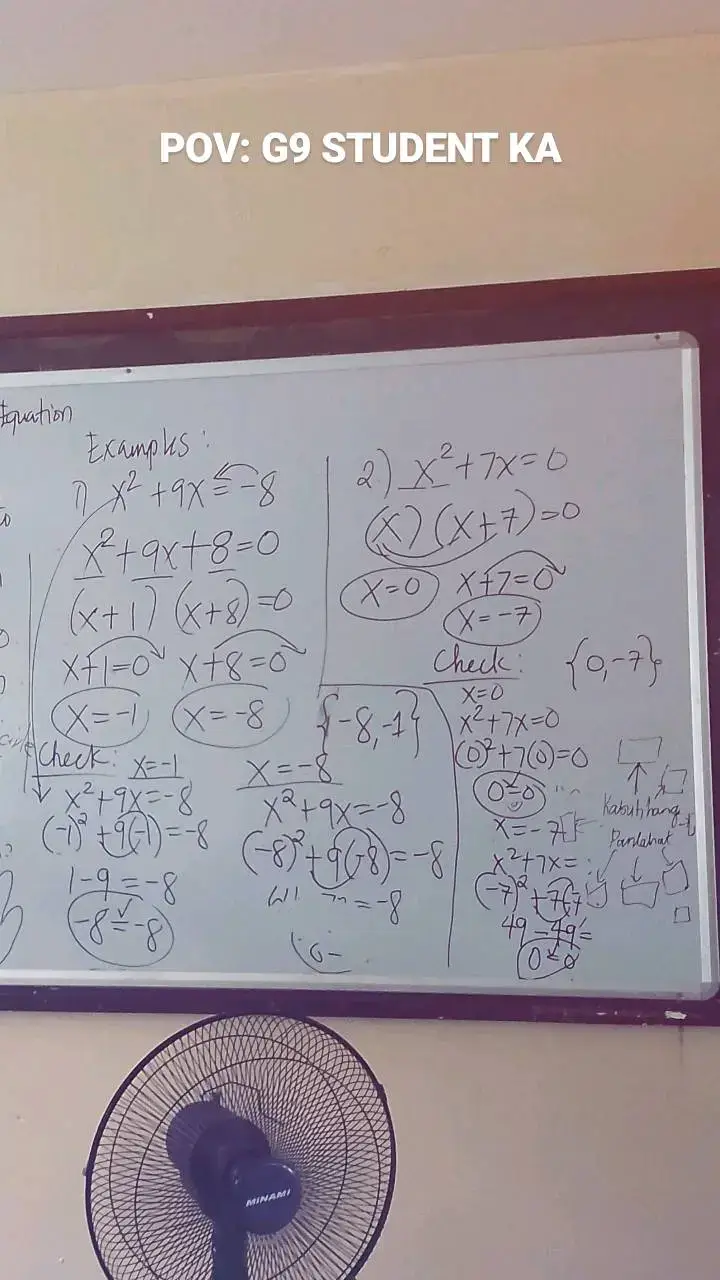 POV: G9 STUDENT KA
Equation
Examples:
1) x² + 9x = -8
x² + 9x + 8 = 0
(x+1) (x+8) = 0
x+1=0 x+8=0
x=-1 x=-8
{-8,-1}
Check: x=-1
x² + 9x = -8
(-1)² + 9(-1) = -8
1-9 = -8
-8 = -8
x=-8
x² + 9x = -8
(-8)² + 9(-8) = -8
= -8
2.) x² + 7x = 0
(x) (x+7) = 0
x=0 x+7=0
x=-7
Check: {0,-7}
x=0
x² + 7x = 0
(0)² + 7(0) = 0
0=0
x=-7
x² + 7x =
(-7)² + 7(-7
49 - 49 =
0 = 0
MINAMI